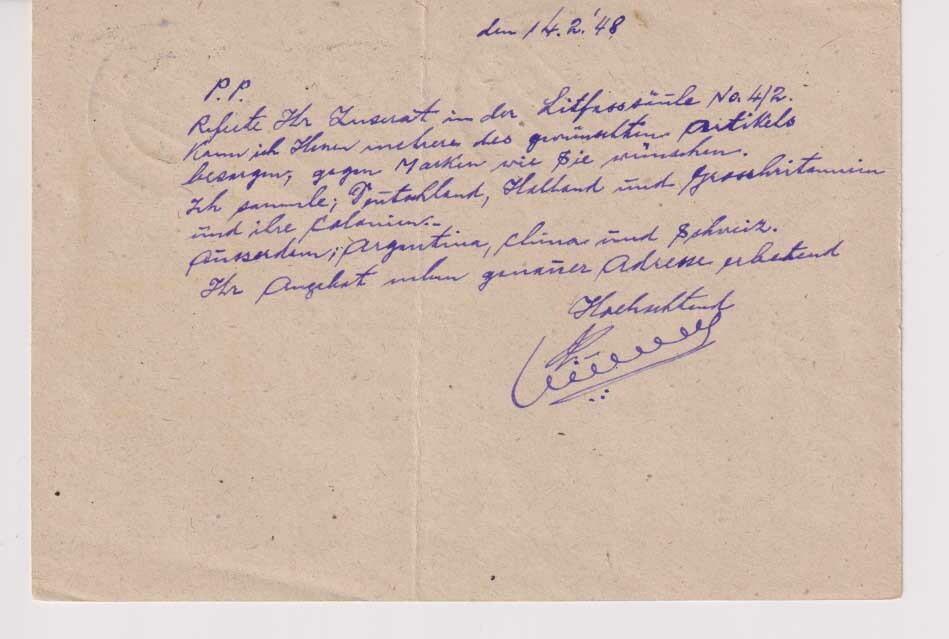 den 14.2.'48
P.P.
Ihr Inserat in der Litfasssäule No. 4/2.
Kann ich Ihnen mehrere des gewünschten Artikels
besorgen, gegen Marken wie Sie wünschen.
Ich sammle; Deutschland, Holland und Grossbritannien
und ihre Colonien.-
Ausserdem; Argentina, China und Schweiz.
Ihr Angebot neben genauer Adresse erbetend
Hochachtend